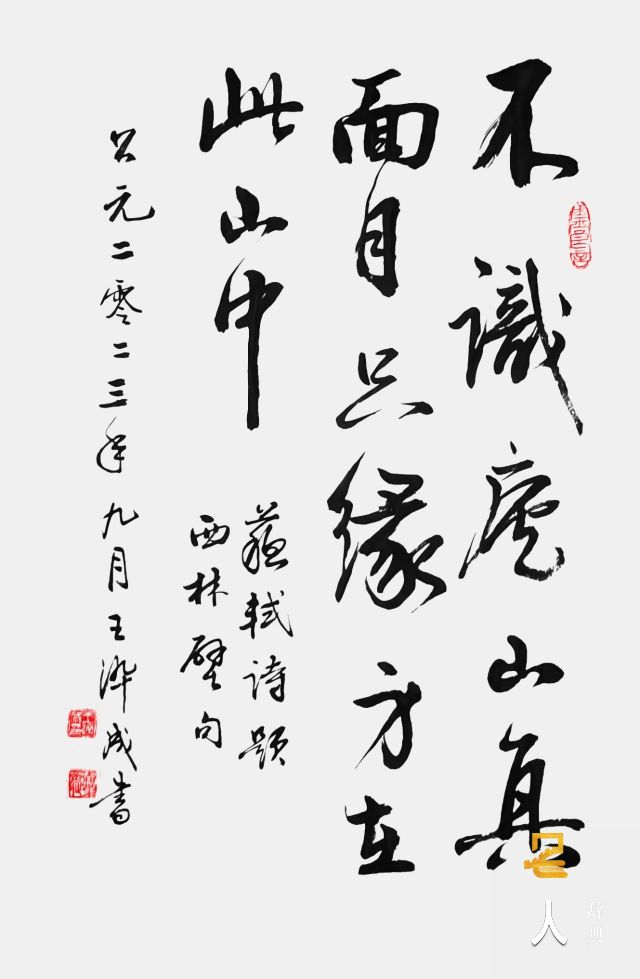 不識廬山真
面目只緣身在
此山中
蘇軾詩題
西林壁句
公元二零二三年九月王成書
名人
辞典